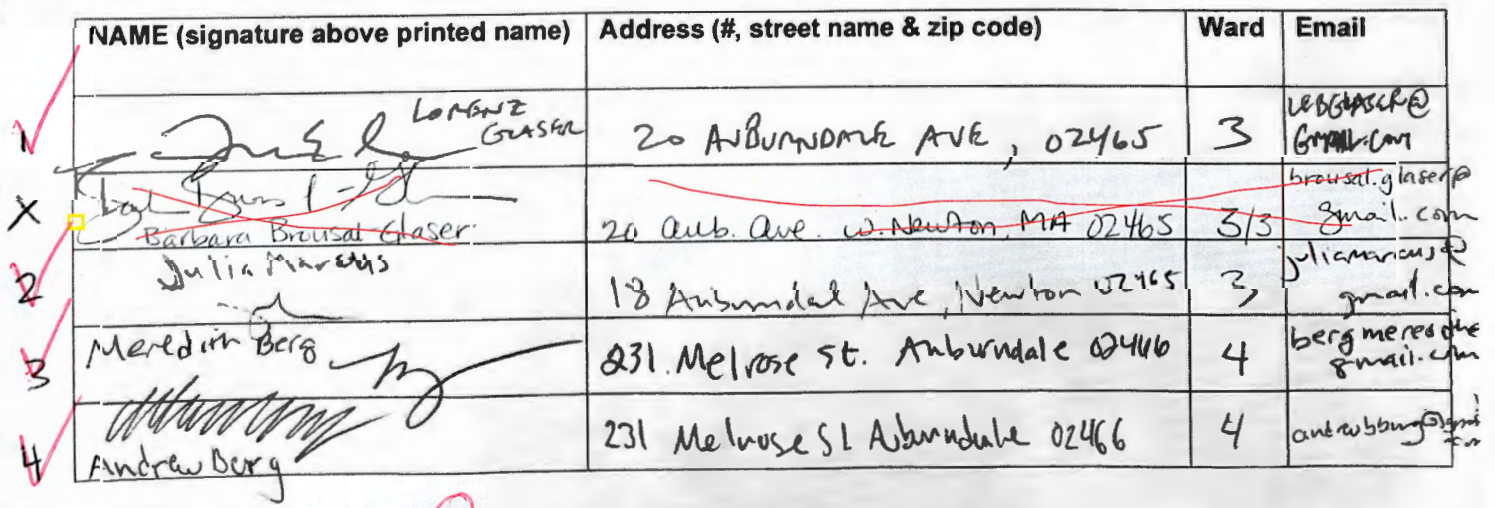 NAME (signature above printed name) Address (#, street name & zip code) Ward Email
1 LORENZ GLASER 20 AUBURNDALE AVE, 02465 3 LEBGLASER@ GMAIL.COM
X Barbara Brousal Glaser 20 Aub. Ave. W. Newton, MA 02465 3/3 brousal.glaser@ gmail.com
2 Julia Marcus 18 Auburndal Ave, Newton 02465 3 juliamarcus@ gmail.com
3 Meredith Berg 231 Melrose St. Auburndale 02466 4 gmail.com
4 Andrew Berg 231 Melrose St Auburndale 02466 4